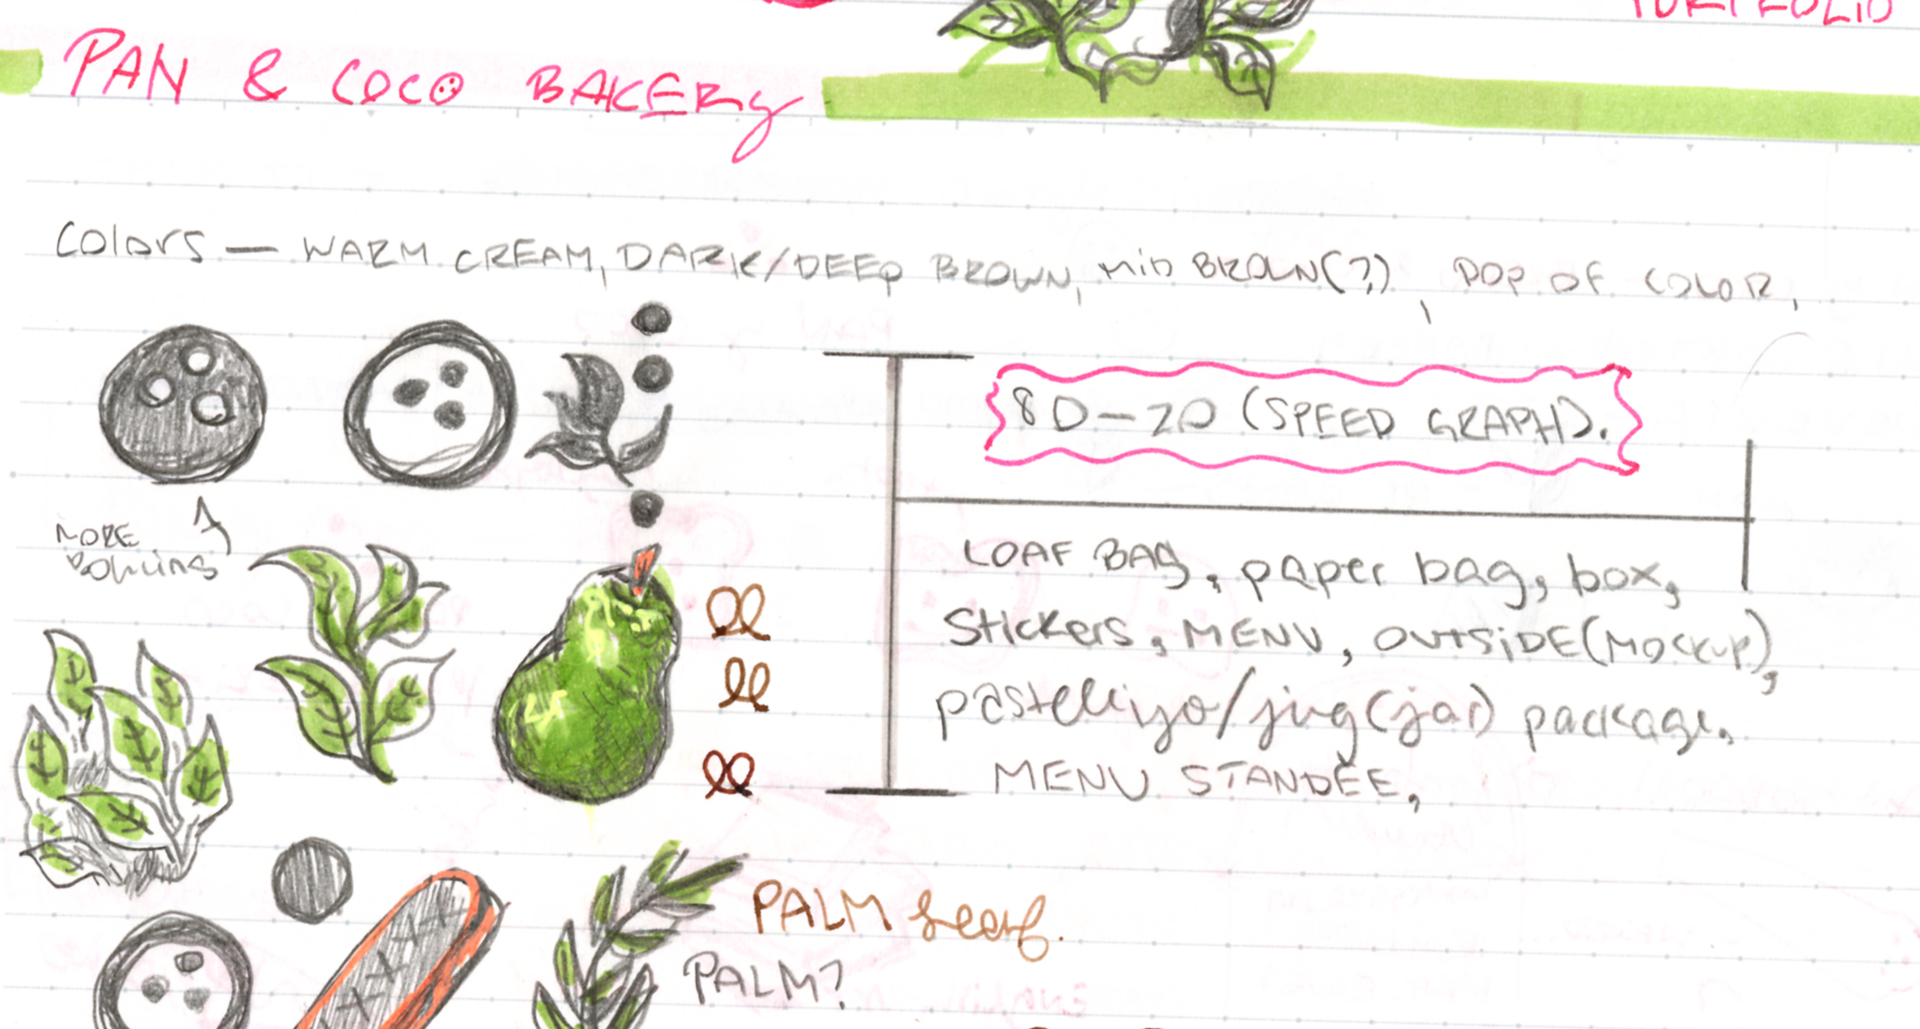 PORTFOLIO
PAN & COCO BAKERy
Colors — WARM CREAM, DARK/DEEP BROWN, MID BROWN(?), POP OF COLOR,
8 D—20 (SPEED GRAPH).
MORE
LOAF BAG, paper bag, box,
Stickers, MENU, OUTSiDE(Mockup),
/jug(jar) package,
MENU STANDEE,
PALM leaf.
PALM?